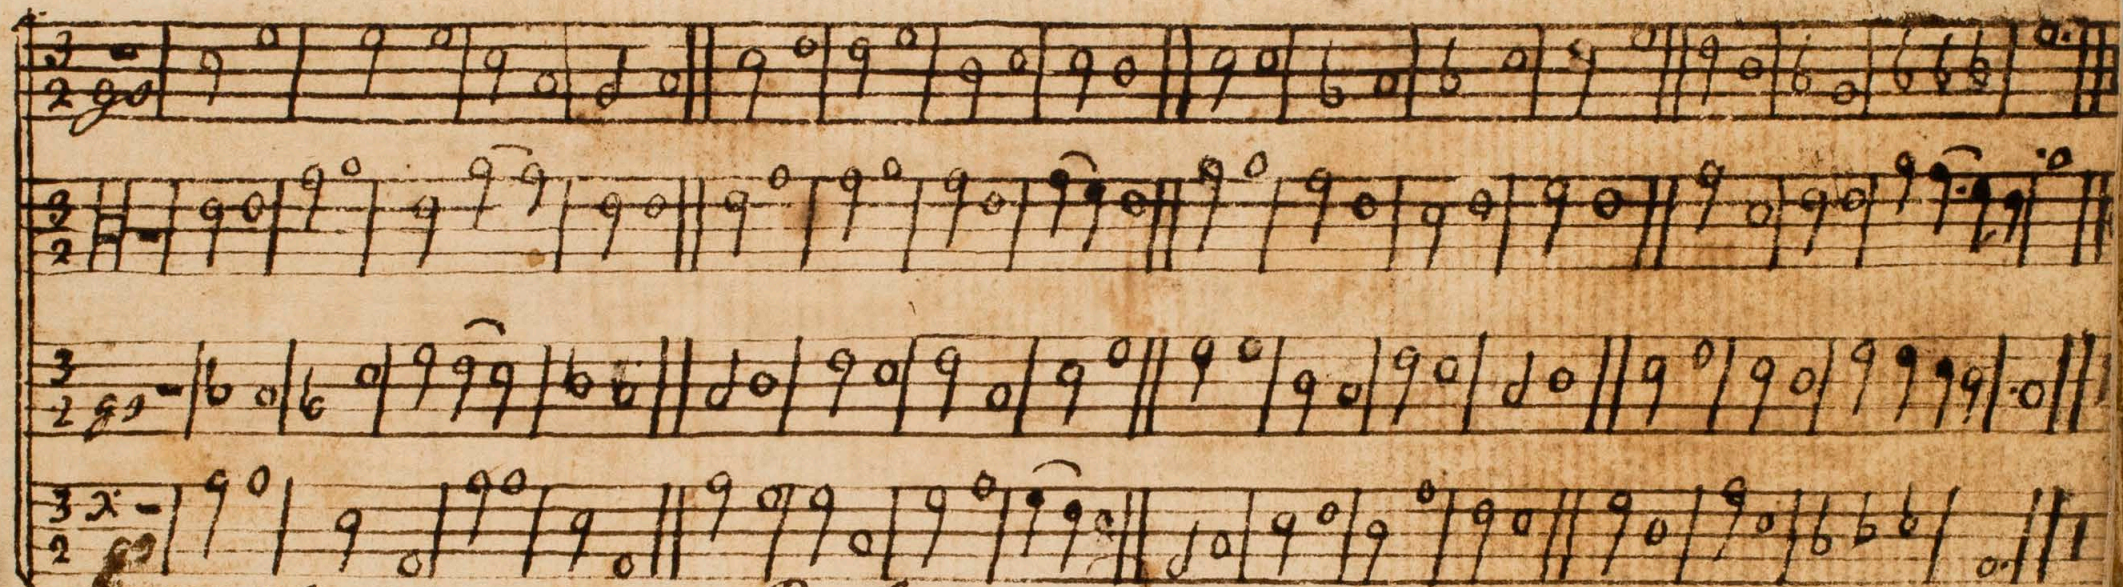 3
2
3
2
3
2
3
2